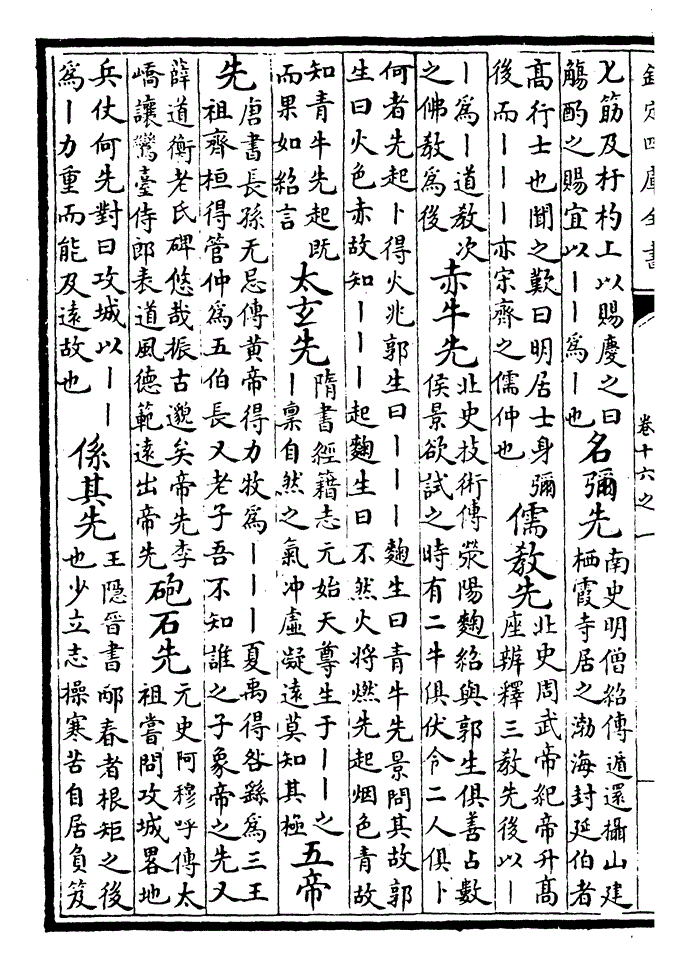 欽定四庫全書
卷十六之一
匕筯及杅杓上以賜慶之曰
觴酌之賜宜以丨丨爲丨也
名彌先
南史明僧紹傳遁還攝山建
栖霞寺居之渤海封延伯者
高行士也聞之歎曰明居士身彌
後而丨丨丨亦宗齊之儒仲也
儒教先
北史周武帝紀帝升高
座辨釋三教先後以丨
丨爲丨道教次
之佛教爲後
赤牛先
北史技術傳滎陽麴紹與郭生俱善占數
侯景欲試之時有二牛俱伏令二人俱卜
何者先起卜得火兆郭生曰丨丨丨麴生曰青牛先景問其故郭
生曰火色赤故知丨丨丨起麴生曰不然火將燃先起烟色青故
知青牛先起既
而果如紹言
太玄先
隋書經籍志元始天尊生于丨丨之
丨稟自然之氣冲虛凝遠莫知其極
五帝
先
唐書長孫无忌傳黄帝得力牧爲丨丨丨夏禹得咎繇爲三王
祖齊桓得管仲爲五伯長又老子吾不知誰之子象帝之先又
薛道衡老氏碑悠哉振古邈矣帝先李
嶠讓鸞臺侍郎表道風德範遠出帝先
砲石先
元史阿穆呼傳太
祖嘗問攻城畧地
兵仗何先對曰攻城以丨丨
爲丨力重而能及遠故也
係其先
王隠晉書邴春者根矩之後
也少立志操寒苦自居負笈